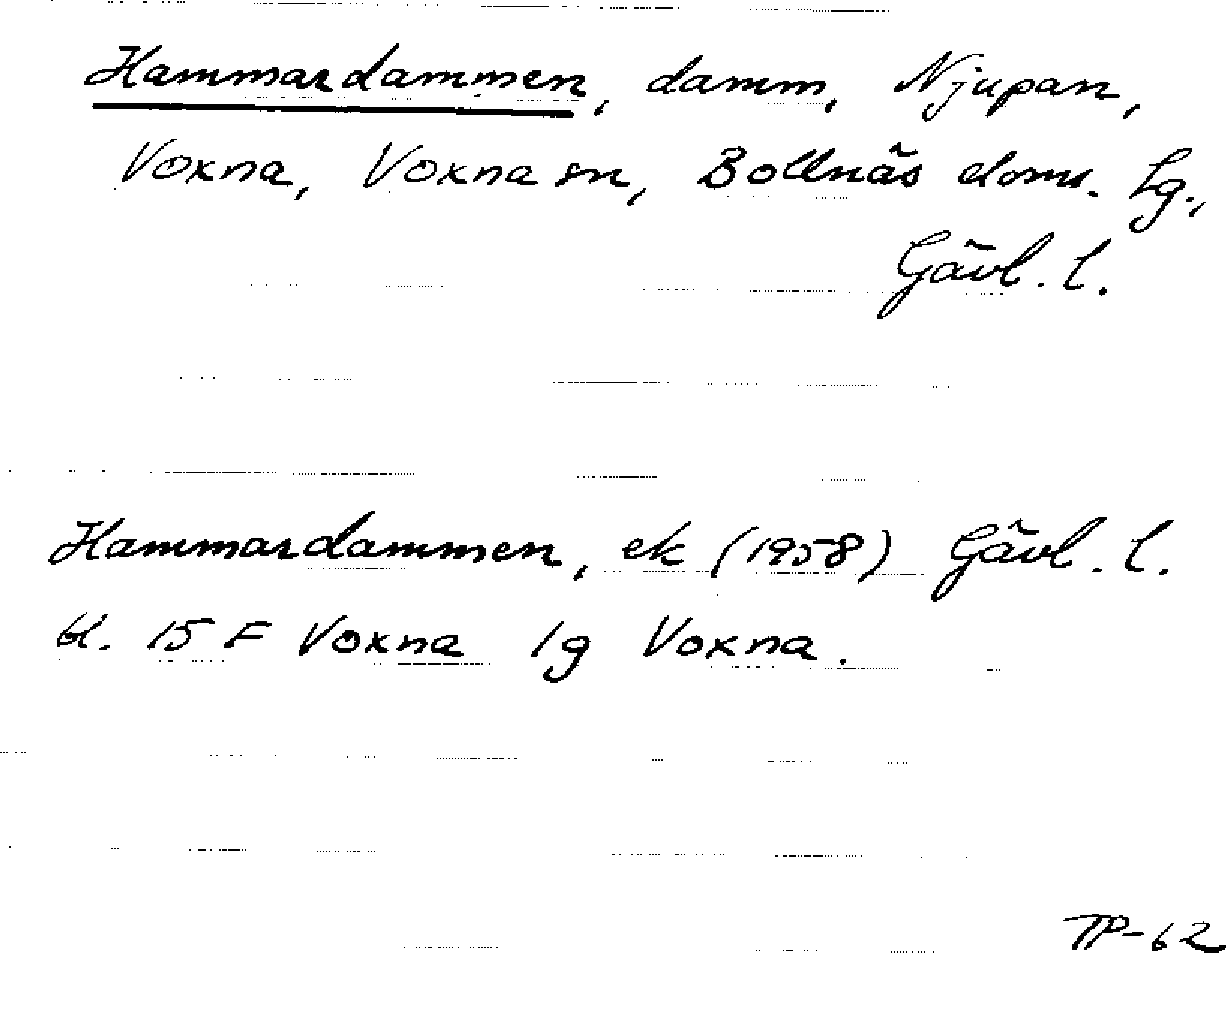 Hammardammen, damm, Njupan,
Voxna, Voxna sn, Bollnäs doms. Lg.,
Gävl. l.
Hammardammen, ek (1958) Gävl. l.
bl. 15 F Voxna 1g Voxna.
TP-62